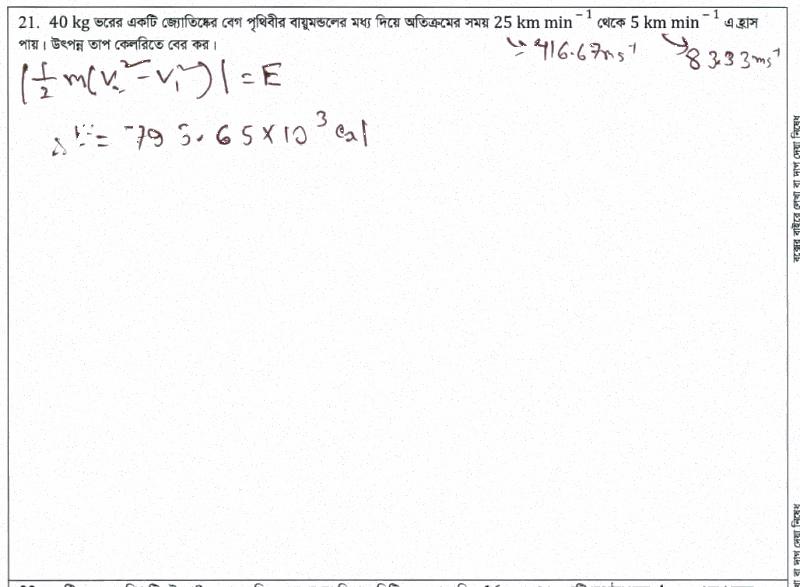 21. 40 kg ভরের একটি জ্যোতিষ্কের বেগ পৃথিবীর বায়ুমন্ডলের মধ্য দিয়ে অতিক্রমের সময় 25 km min⁻¹ থেকে 5 km min⁻¹ এ হ্রাস
পায়। উৎপন্ন তাপ কেলরিতে বের কর।
416.67 ms⁻¹
83.33 ms⁻¹
|½ m(v₂² - v₁²)| = E
= -795.65 × 10³ Cal